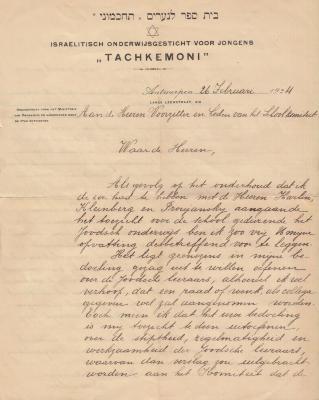 בית ספר לנערים „תחכמוני"
ISRAELITISCH ONDERWIJSGESTICHT VOOR JONGENS
„TACHKEMONI”
Antwerpen 26 Februari 1924
LANGE LEEMSTRAAT,
Aan de Heeren Voorzitter en Leden van het Schoolkomiteit
Waarde Heeren,
Als gevolg op het onderhoud dat ik
de eer had te hebben met de Heeren
Kleinberg en aangaande
het toezicht over de school gedurende het
Joodsch onderwijs ben ik zoo vrij U mijne
opvatting desbetreffend voor te leggen.
Het ligt geenszins in mijne be-
doeling gezag uit te willen oefenen
over de Joodsche leeraars, alhoewel ik wel
verhoop, dat een raad of wenk, als collega
gegeven wel zal aangenomen worden.
Toch meen ik dat het uwe bedoeling
is mij toezicht te doen uitoefenen,
over de stiptheid, regelmatigheid en
werkzaamheid der Joodsche leeraars,
waarvan dan verslag zou uitgebracht
worden aan het Komiteit dat de